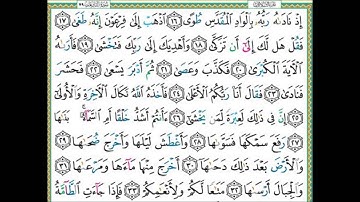 إِذْ نَادَىٰهُ رَبُّهُۥ بِٱلْوَادِ ٱلْمُقَدَّسِ طُوًى ١٦ ٱذْهَبْ إِلَىٰ فِرْعَوْنَ إِنَّهُۥ طَغَىٰ ١٧
فَقُلْ هَل لَّكَ إِلَىٰٓ أَن تَزَكَّىٰ ١٨ وَأَهْدِيَكَ إِلَىٰ رَبِّكَ فَتَخْشَىٰ ١٩ فَأَرَىٰهُ
ٱلْءَايَةَ ٱلْكُبْرَىٰ ٢٠ فَكَذَّبَ وَعَصَىٰ ٢١ ثُمَّ أَدْبَرَ يَسْعَىٰ ٢٢ فَحَشَرَ
فَنَادَىٰ ٢٣ فَقَالَ أَنَا۠ رَبُّكُمُ ٱلْأَعْلَىٰ ٢٤ فَأَخَذَهُ ٱللَّهُ نَكَالَ ٱلْءَاخِرَةِ وَٱلْأُولَىٰٓ
٢٥ إِنَّ فِي ذَٰلِكَ لَعِبْرَةً لِّمَن يَخْشَىٰٓ ٢٦ ءَأَنتُمْ أَشَدُّ خَلْقًا أَمِ ٱلسَّمَآءُ ۚ بَنَىٰهَا
٢٧ رَفَعَ سَمْكَهَا فَسَوَّىٰهَا ٢٨ وَأَغْطَشَ لَيْلَهَا وَأَخْرَجَ ضُحَىٰهَا ٢٩
وَٱلْأَرْضَ بَعْدَ ذَٰلِكَ دَحَىٰهَآ ٣٠ أَخْرَجَ مِنْهَا مَآءَهَا وَمَرْعَىٰهَا ٣١
وَٱلْجِبَالَ أَرْسَىٰهَا ٣٢ مَتَٰعًا لَّكُمْ وَلِأَنْعَٰمِكُمْ ٣٣ فَإِذَا جَآءَتِ ٱلطَّآمَّةُ